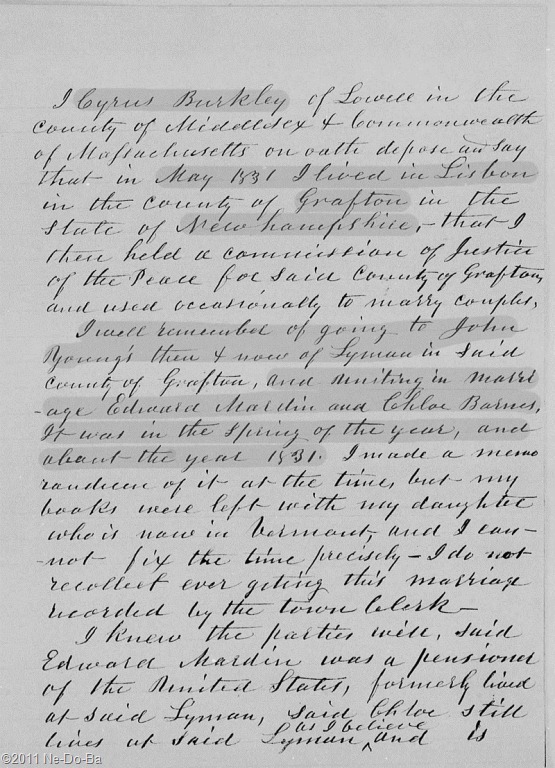 I Cyrus Burkley of Lowell in the
county of Middlesex & Commonwealth
of Massachusetts on oath depose and say
that in May 1831 I lived in Lisbon
in the county of Grafton in the
State of New hampshire, - that I
then held a commission of Justice
of the Peace for said County of Grafton,
and used occasionally to marry couples,
I well remember of going to John
Young's then & now of Lyman in said
county of Grafton, and uniting in marri
-age Edward Mardin and Chloe Barnes,
It was in the spring of the year, and
about the year 1831. I made a memo
randum of it at the time, but my
books were left with my daughter
who is now in Vermont, and I can-
-not fix the time precisely - I do not
recollect ever geting this marriage
recorded by the town Clerk -
I knew the parties well, said
Edward Mardin was a pensioner
of the United States, formerly lived
at said Lyman, said Chloe still
lives at said Lyman, as I believe and is
©2011 Ne-Do-Ba